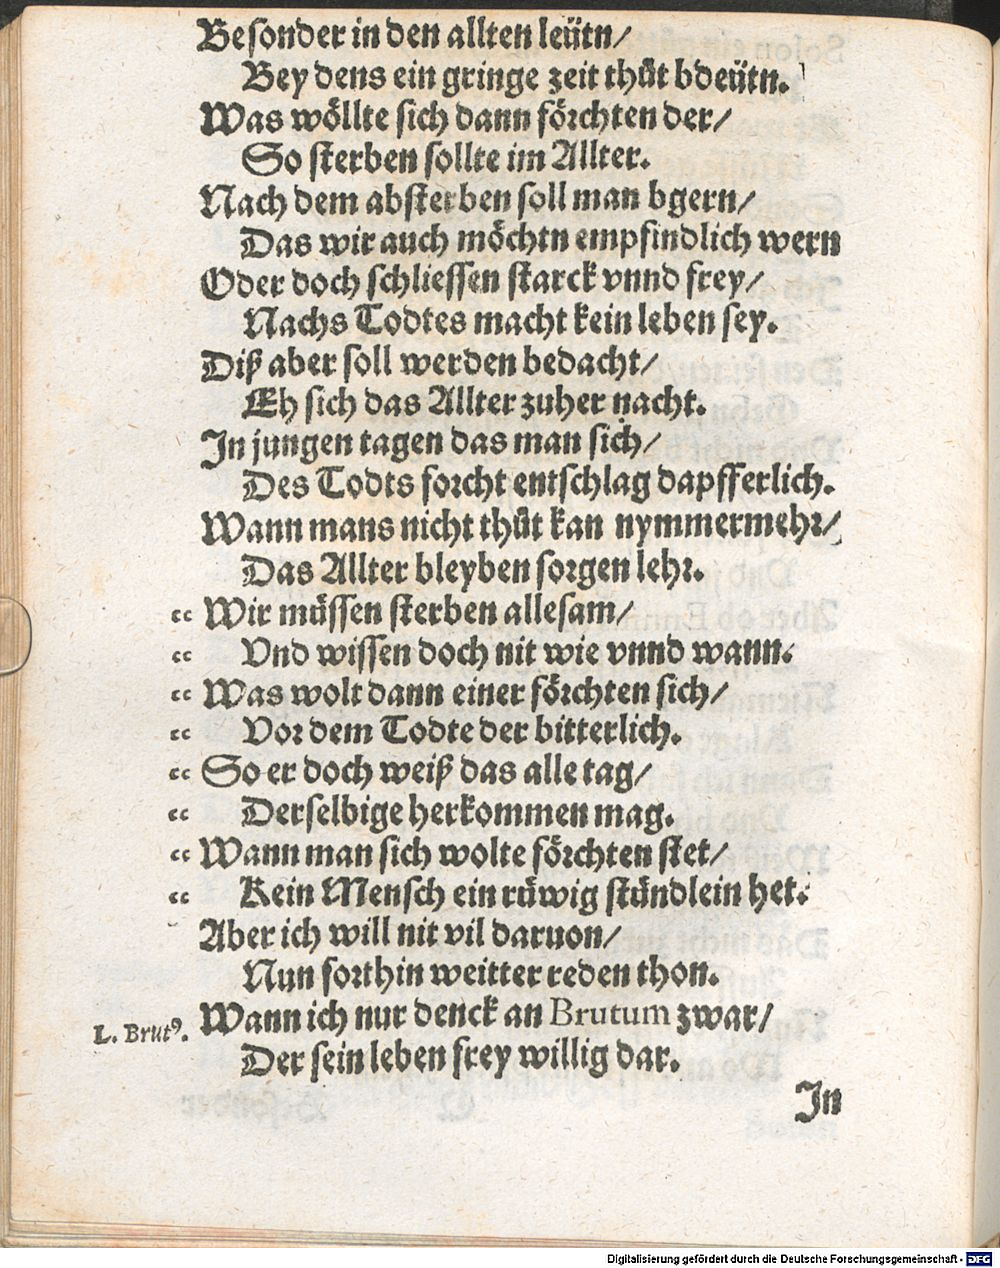 Besonder in den allten leütn/
Bey dens ein gringe zeit thůt bdeütn.
Was wöllte sich dann förchten der/
So sterben sollte im Allter.
Nach dem absterben soll man bgern/
Das wir auch möchtn empfindlich wern
Oder doch schliessen starck vnnd frey/
Nachs Todtes macht kein leben sey.
Diß aber soll werden bedacht/
Eh sich das Allter zuher nacht.
In jungen tagen das man sich/
Des Todts forcht entschlag dapfferlich.
Wann mans nicht thůt kan nymmermehr/
Das Allter bleyben sorgen lehr.
“ Wir müssen sterben allesam/
“ Vnd wissen doch nit wie vnnd wann.
“ Was wolt dann einer förchten sich/
“ Vor dem Todte der bitterlich.
“ So er doch weiß das alle tag/
“ Derselbige herkommen mag.
“ Wann man sich wolte förchten stet/
“ Kein Mensch ein rüwig stündlein het.
Aber ich will nit vil daruon/
Nun forthin weitter reden thon.
L. Brutꝰ. Wann ich nur denck an Brutum zwar/
Der sein leben frey willig dar.
In
Digitalisierung gefördert durch die Deutsche Forschungsgemeinschaft - DFG